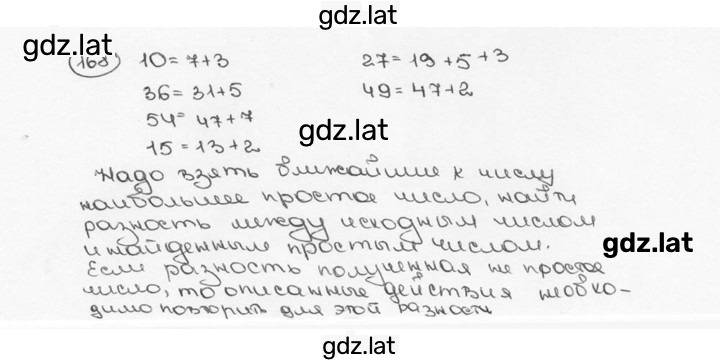 gdz.lat
gdz.lat
168 10 = 7+3 27 = 19 + 5 + 3
36 = 31+5 49 = 47+2
54 = 47+7
gdz.lat
15 = 13+2
Надо взять ближайшие к числу
наибольшее простое число, найти
разность между исходным числом
и найденным простым числом.
gdz.lat
Если разность полученная не простое
число, то описанные действия необхо-
димо повторить для этой разности
gdz.lat